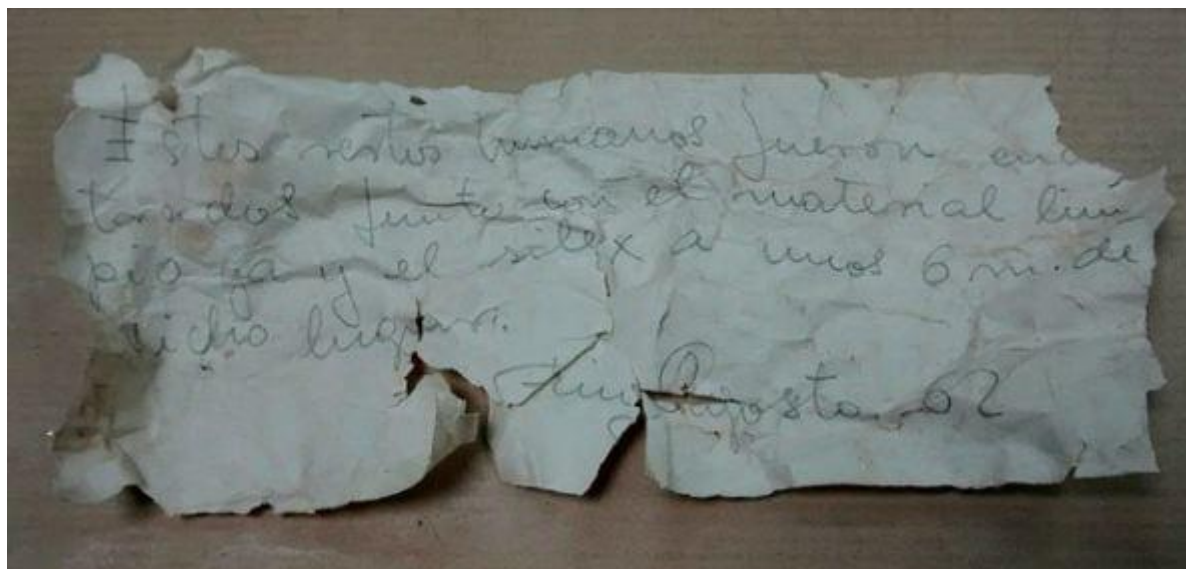 Estos restos humanos fueron enc
trados junto con el material lim
pio ya y el silex a unos 6 m. de
dicho lugar.
Agosto 62